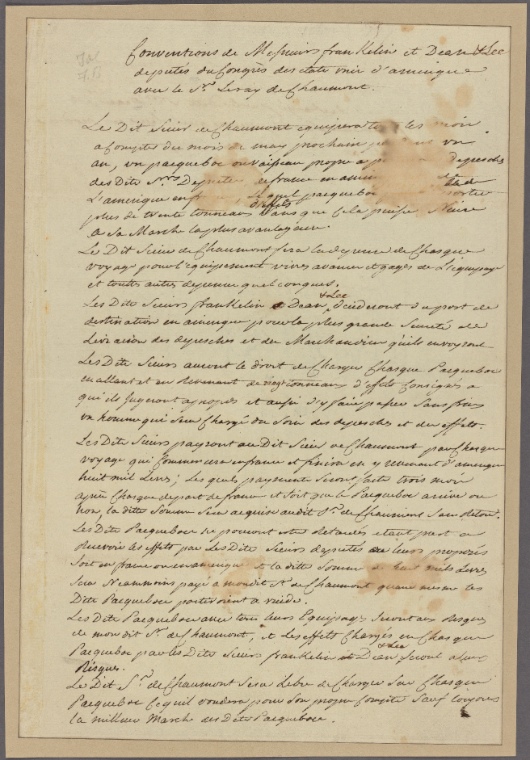 Conventions de Messieurs franKelin et Dean & Lee
deputés du Congrès des états unis d'amerique
avec le Sr. Leray de Chaumont.
Le Dit Sieur de Chaumont equipera tous les mois
a Compter du mois de mars prochain pendant un
an, un pacquebot ou vaisseau propre a porter depesches
des Dits Srs. Deputés de france en amerique et de
L'amerique en france lequel pacquebot porter
plus de trente tonneaux d'effets sans que cela puisse Nuire
a Sa Marche la plus avantageuse.
Le Dit Sieur de Chaumont fera la depense de Chaque
voyage pour l'equipement vivres avances et gages de L'equipage
et toutes autres depenses quelconques.
Les Dits Sieurs franKelin et Dean & Lee, decideront du port de
destination en amerique pour la plus grande Sureté de
Livraison des depesches et des Marchandises qu'ils envoyeront
Les Dits Sieurs auront le droit de Charger Chaque Pacquebot
en allant et en Revenant de tonneaux d'effets Consignés a
qui ils Jugeront apropos et aussi d'y faire passer Sans frais
un homme qui Sera Chargé du Soin des depesches et des effets.
Les Dits Sieurs payeront au Dit Sieur de Chaumont pour Chaque
voyage qui Commencera en france et finira en y revenant d'amerique
huit mil Livres; Lesquels payements Seront faits trois mois
après Chaque depart de france et Soit que le Pacquebot arrive ou
non, la ditte Somme Sera acquise audit Sr. de Chaumont Sans Retour.
Les Dits Pacquebots ne pouvant etre retardés etant prest a
Recevoir les effets par Les Dits Sieurs deputés ou leurs preposés
Soit en france ou en amerique et la ditte Somme de huit mils Livres
Sera Neanmoins payé a mondit Sr. de Chaumont quand mesme les
Dits Pacquebots partiroient a vuide.
Les Dits Pacquebots avec tous leurs Equipages Seront aux Risques
de mon dit Sr. de Chaumont, et Les effets Chargés en Chaque
Pacquebot par les Dits Sieurs franKelin et Dean & Lee Seront a leurs
Risques.
Le Dit Sr. de Chaumont Sera Libre de Charger Sur Chaque
Pacquebot Ce qu'il voudra pour Son propre Compte Sauf toujours
la meilleure Marche des Dits Pacquebots.